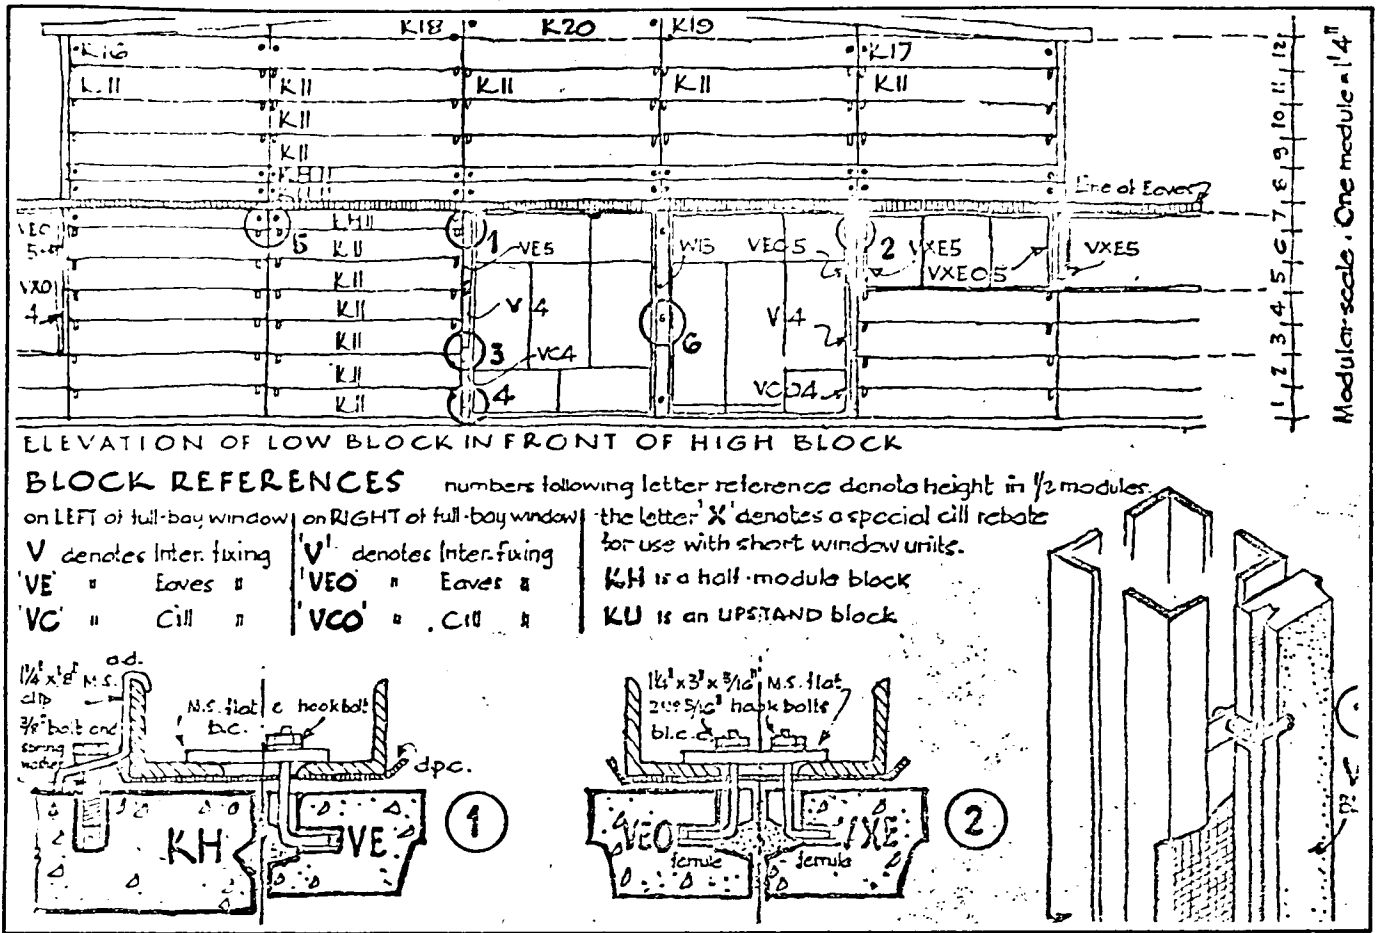 K18 K20 K19
K16 K17
K.11 K11 K11 K11 K11
K11
K11
Line of Eaves
KH11
VEO 5 5 K11 1 VE5 WB VEO5 2 VXE5 VXEO5 VXE5
VXO 4 K11 V4 V4
K11
K11 3 VC4 6
K11 4 VCO4
K11
1 2 3 4 5 6 7 8 9 10 11 12
Modular scale. One module = 1'4"
ELEVATION OF LOW BLOCK IN FRONT OF HIGH BLOCK
BLOCK REFERENCES numbers following letter reference denote height in 1/2 modules.
on LEFT of full-bay window
V denotes Inter. fixing
'VE' " Eaves "
'VC' " Cill "
on RIGHT of full-bay window
'V' denotes Inter. fixing
'VEO' " Eaves "
'VCO' " Cill "
the letter 'X' denotes a special cill rebate
for use with short window units.
KH is a half-module block
KU is an UPSTAND block
1¼" x 1/8" M.S.
clip
3/8" bolt and
spring
washer
M.S. flat & hookbolt
b.c.
d.p.c.
KH VE
1
1¼" x 3" x 3/16" M.S. flat
2 no 5/16" hook bolts
VEO VXE
ferrule ferrule
2